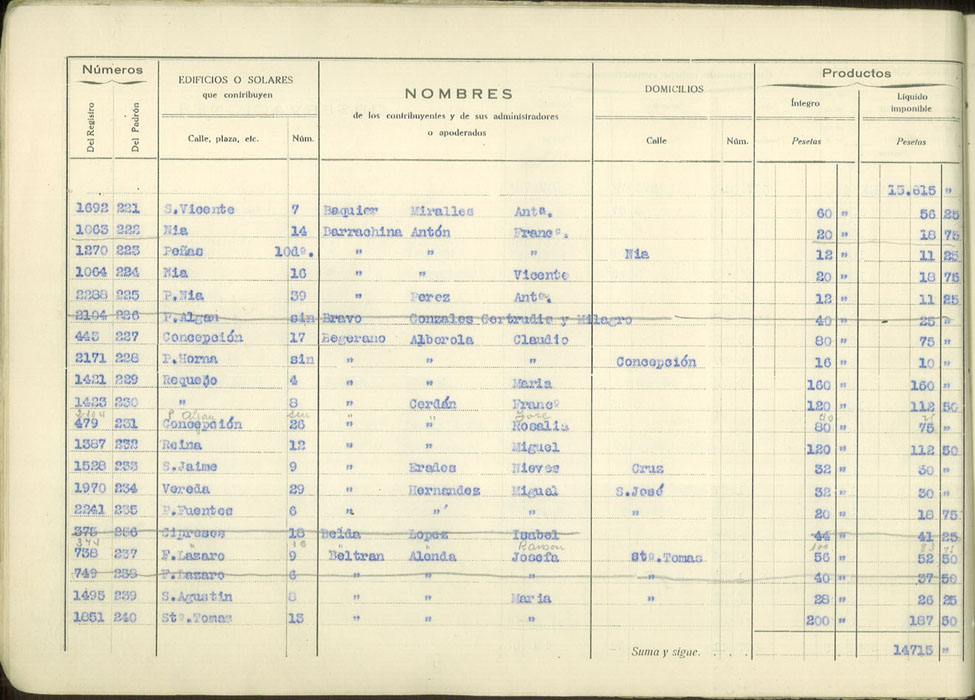 Números
EDIFICIOS O SOLARES
que contribuyen
NOMBRES
de los contribuyentes y de sus administradores
o apoderados
DOMICILIOS
Productos
Íntegro
Líquido imponible
Del Registro Del Padrón Calle, plaza, etc. Núm. Calle Núm. Pesetas Pesetas
13.615 "
1692 221 S.Vicente 7 Baquier Miralles Antª. 60 " 56 25
1063 222 Nia 14 Barrachina Antón Francº. 20 " 18 75
1270 223 Peñas 10dº. " " " Nia 12 " 11 25
1064 224 Nia 16 " " Vicente 20 " 18 75
2288 225 P.Nia 39 " Perez Antº. 12 " 11 25
2104 226 P.Algan sin Bravo Gonzales Gertrudis y Milagro 40 " 25 "
445 227 Concepción 17 Begerano Alberola Claudio 80 " 75 "
2171 228 P.Horna sin " " " Concepción 16 " 10 "
1421 229 Requejo 4 " " Maria 160 " 160 "
1423 230 " 8 " Cerdán Francº 120 " 112 50
2104 P Algan sin " " José 40 25
479 231 Concepción 26 " " Rosalia 80 " 75 "
1387 232 Reina 12 " " Miguel 120 " 112 50
1528 233 S.Jaime 9 " Erades Nieves Cruz 32 " 30 "
1970 234 Vereda 29 " Hernandez Miguel S.José 32 " 30 "
2241 235 P.Fuentes 6 " " " " 20 " 18 75
375 236 Cipreses 18 Belda Lopez Isabel 44 " 41 25
374 " 16 " Ramon 100
738 237 F.Lazaro 9 Beltran Alonda Josefa Stº.Tomas 56 " 52 50
749 238 F.Lazaro 6 " " " " 40 " 37 50
1495 239 S.Agustin 8 " " Maria " 28 " 26 25
1851 240 Stº.Tomas 13 " " " 200 " 187 50
Suma y sigue. . . . 14715 "